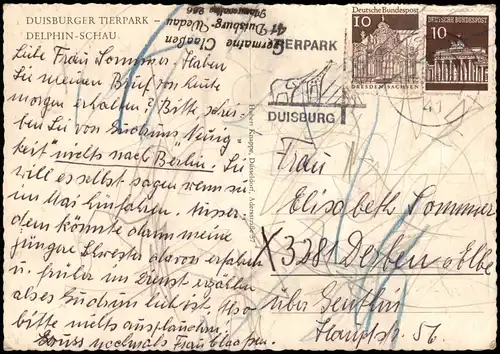 DUISBURGER TIERPARK –
DELPHIN-SCHAU
Germaine Claaßen
41 Duisburg-Wedau
266
Liebe Frau Sommer. Haben
Sie meinen Brief von heute
morgen erhalten? Bitte schrei-
ben Sie von Gudruns Neuig-
keit nichts nach Berlin. Sie
will es selbst sagen wenn sie
im Mai hinfahren. Ausser-
dem könnte dann meine
jüngere Schwester davon erfahren
u. früher im Dienst erzählen
als es Gudrun lieb ist. Also
bitte nichts ausplaudern.
Gruss nochmals Frau Claassen.
TIERPARK
DUISBURG
Deutsche Bundespost
10
DRESDEN/SACHSEN
DEUTSCHE BUNDESPOST
10
41
Frau
Elisabeth Sommer
X 3281 Derben a Elbe
über Genthin
Hauptstr. 56.